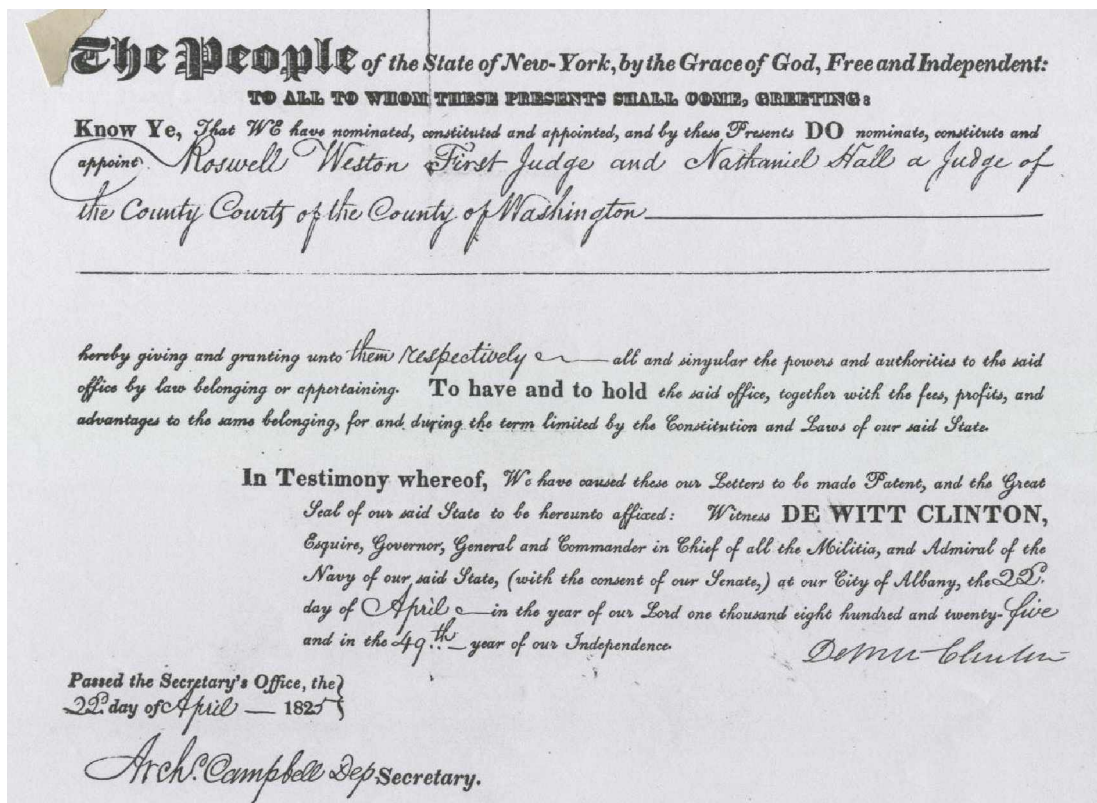 The People of the State of New-York, by the Grace of God, Free and Independent:
TO ALL TO WHOM THESE PRESENTS SHALL COME, GREETING:
Know Ye, That WE have nominated, constituted and appointed, and by these Presents DO nominate, constitute and
appoint Roswell Weston First Judge and Nathaniel Hall a Judge of
the County Courts of the County of Washington
hereby giving and granting unto them respectively all and singular the powers and authorities to the said
office by law belonging or appertaining. To have and to hold the said office, together with the fees, profits, and
advantages to the same belonging, for and during the term limited by the Constitution and Laws of our said State.
In Testimony whereof, We have caused these our Letters to be made Patent, and the Great
Seal of our said State to be hereunto affixed: Witness DE WITT CLINTON,
Esquire, Governor, General and Commander in Chief of all the Militia, and Admiral of the
Navy of our said State, (with the consent of our Senate,) at our City of Albany, the 22d.
day of April in the year of our Lord one thousand eight hundred and twenty-five
and in the 49th year of our Independence.
DeWitt Clinton
Passed the Secretary's Office, the
22d day of April 1825
Archd. Campbell Dep Secretary.